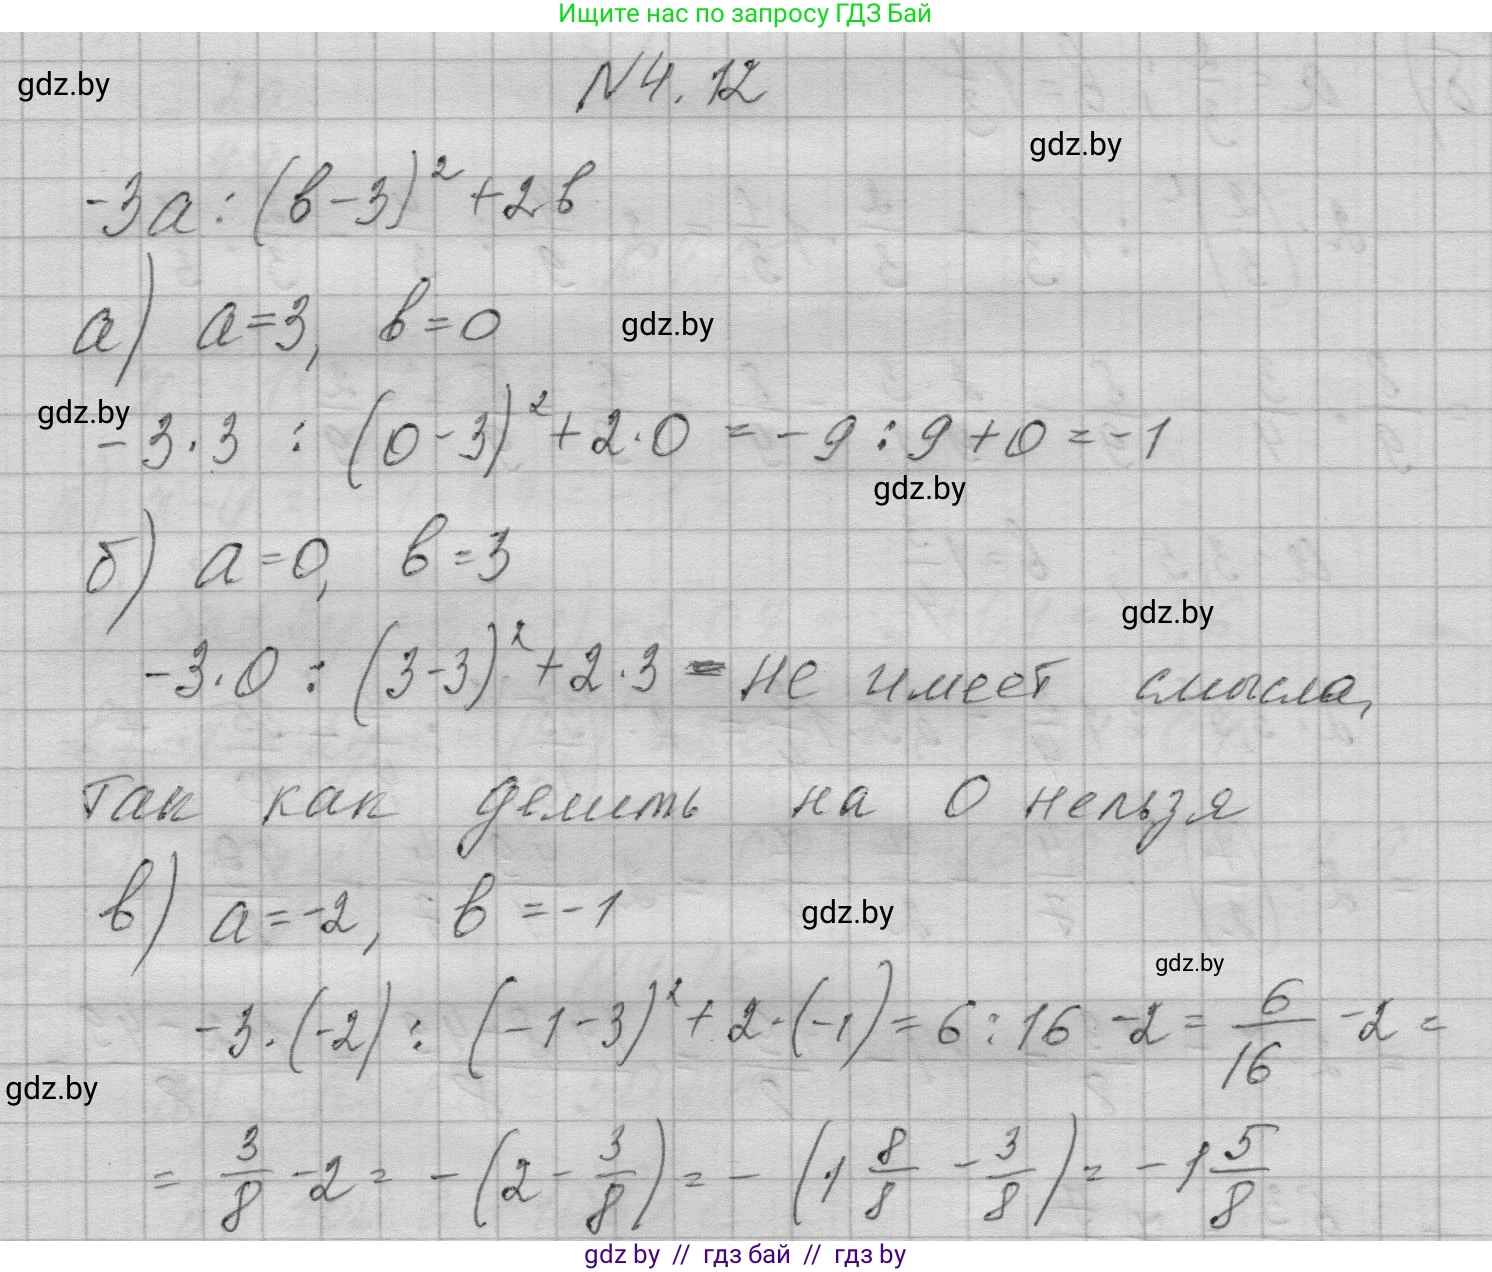 Ищите нас по запросу ГДЗ Бай
gdz.by
N4.12
gdz.by
-3а : (в-3)² + 2в
а) а=3, в=0
gdz.by
gdz.by
-3·3 : (0-3)² + 2·0 = -9 : 9 + 0 = -1
gdz.by
б) а=0, в=3
gdz.by
-3·0 : (3-3)² + 2·3 = не имеет смысла,
так как делить на 0 нельзя
в) а=-2, в=-1
gdz.by
gdz.by
-3·(-2) : (-1-3)² + 2·(-1) = 6 : 16 -2 = 6/16 -2 =
gdz.by
= 3/8 -2 = -(2 - 3/8) = -(1 8/8 - 3/8) = -1 5/8
gdz by // гдз бай // гдз by